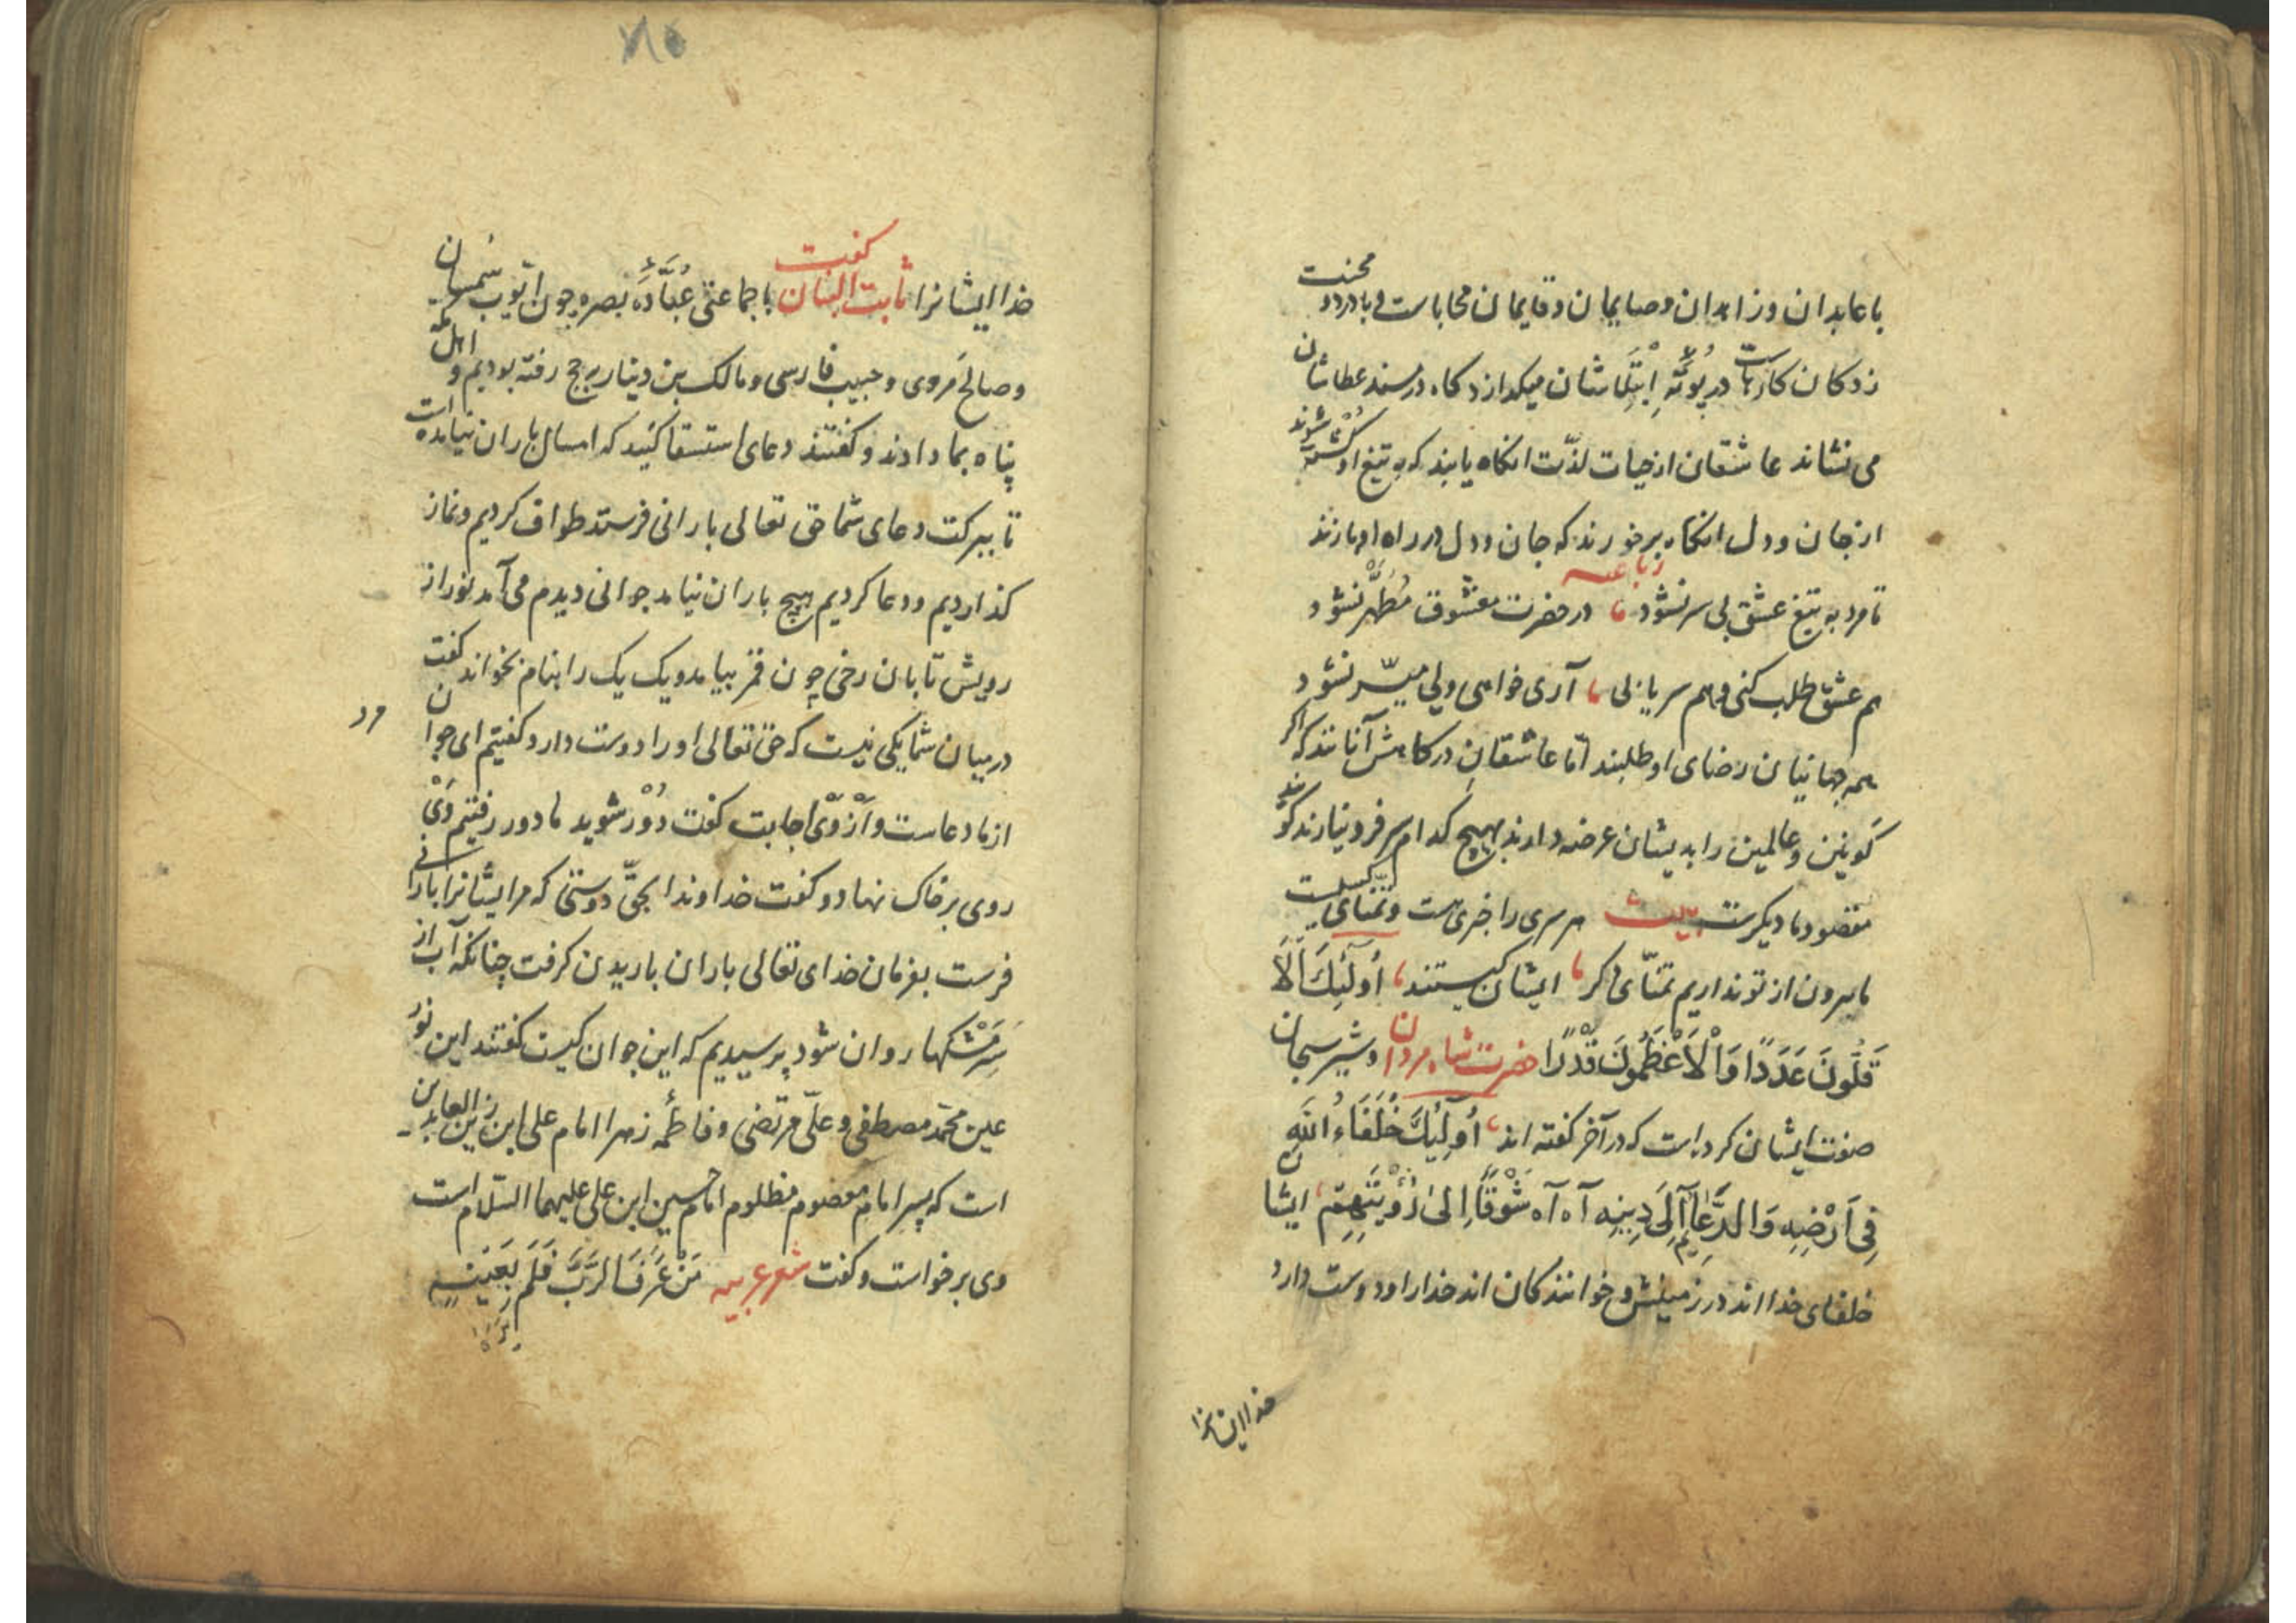 با عابدان و زاهدان و صایمان و قایمان محاباست و با درد و محنت
زدکان کارهاست در بُوتَهٔ اِبْتِلَاشان میکدازد کاه در مسند عطاشان
می نشاند عاشقان از حیات لذّت انکاه یابند که به تیغ او کُشته شوند
از جان و دل انکاه برخورند که جان و دل در راه او بازند
رباعیه
تا مرد به تیغ عشق بی سر نشود ، در حضرت معشوق مُطَهَّر نشود
هم عشق طلب کنی و هم سر یازلی ، آری خواهی ولی میسّر نشود
همه جهانیان رضای او طلبند امّا عاشقانِ درکاهش آنانند که اکر
کَونین و عالمین را بدیشان عرضه دارند بهیچ کدام سر فرو نیارند کویند
مقصود ما دیکرست بیت هر سری را خبری هست و تمنّای کسیست
ما برون از تو نداریم تمنّای دکر ، ایشان کیستند ، اُولٰئِكَ اَلْاَ
قَلُّونَ عَدَدًا وَالْاَعْظَمُونَ قَدْرًا حضرت شاه مردان و شیر سبحان
صفت ایشان کرده است که در آخر کفته اند ، اُولٰئِكَ خُلَفَاءُ اللّٰهِ
فِی اَرْضِهِ وَالدُّعَاةُ اِلَی دِینِهِ آه آه شَوْقًا اِلیٰ رُؤْیَتِهِم ، ایشان
خلفای خدا اند در زمینش و خوانندکان اند خدا را و دوست دارد
خدا ایشانرا
۷۸۵
خدا ایشانرا ثابت البنان کفت با جماعتی عُبَّادِ بصره چون ایّوب سَهمان
و صالح مَروی و حبیب فارسی و مالک بن دینار بحج رفته بودیم و اهل مکّه
پناه بما دادند و کفتند دعای استسقا کنید که امسال باران نیامده است
تا ببرکت دعای شما حق تعالی بارانی فرستد طواف کردیم و نماز
کذاردیم و دعا کردیم هیچ باران نیامد جوانی دیدم می آمد نور از
رویش تابان رخی چون قمر بیامد و یک یک را بنام بخواند کفت
در میان شما یکی نیست که حق تعالی او را دوست دارد کفتیم ای جوان
از ما دعاست و اَزْ وَیْ اجابت کفت دُوْر شوید ما دور رفتیم وَیْ
روی بر خاک نهاد و کفت خداوندا بحقّ دوستی که مر ایشانرا بارانی
فرست بفرمان خدای تعالی باران باریدن کرفت چنانکه آب از
سَرِ مَشْکها روان شود پرسیدیم که این جوان کیست کفتند این نور
عین محمّد مصطفی و علیّ مرتضی و فاطمهٔ زهرا امام علی ابن زین العابدین
است که پسر امام معصوم مظلوم امام حسین ابن علی علیهما السّلام است
وی برخواست و کفت شعر عربیه مَنْ عَرَفَ الرَّبَّ فَلَم تُغْنِهِ